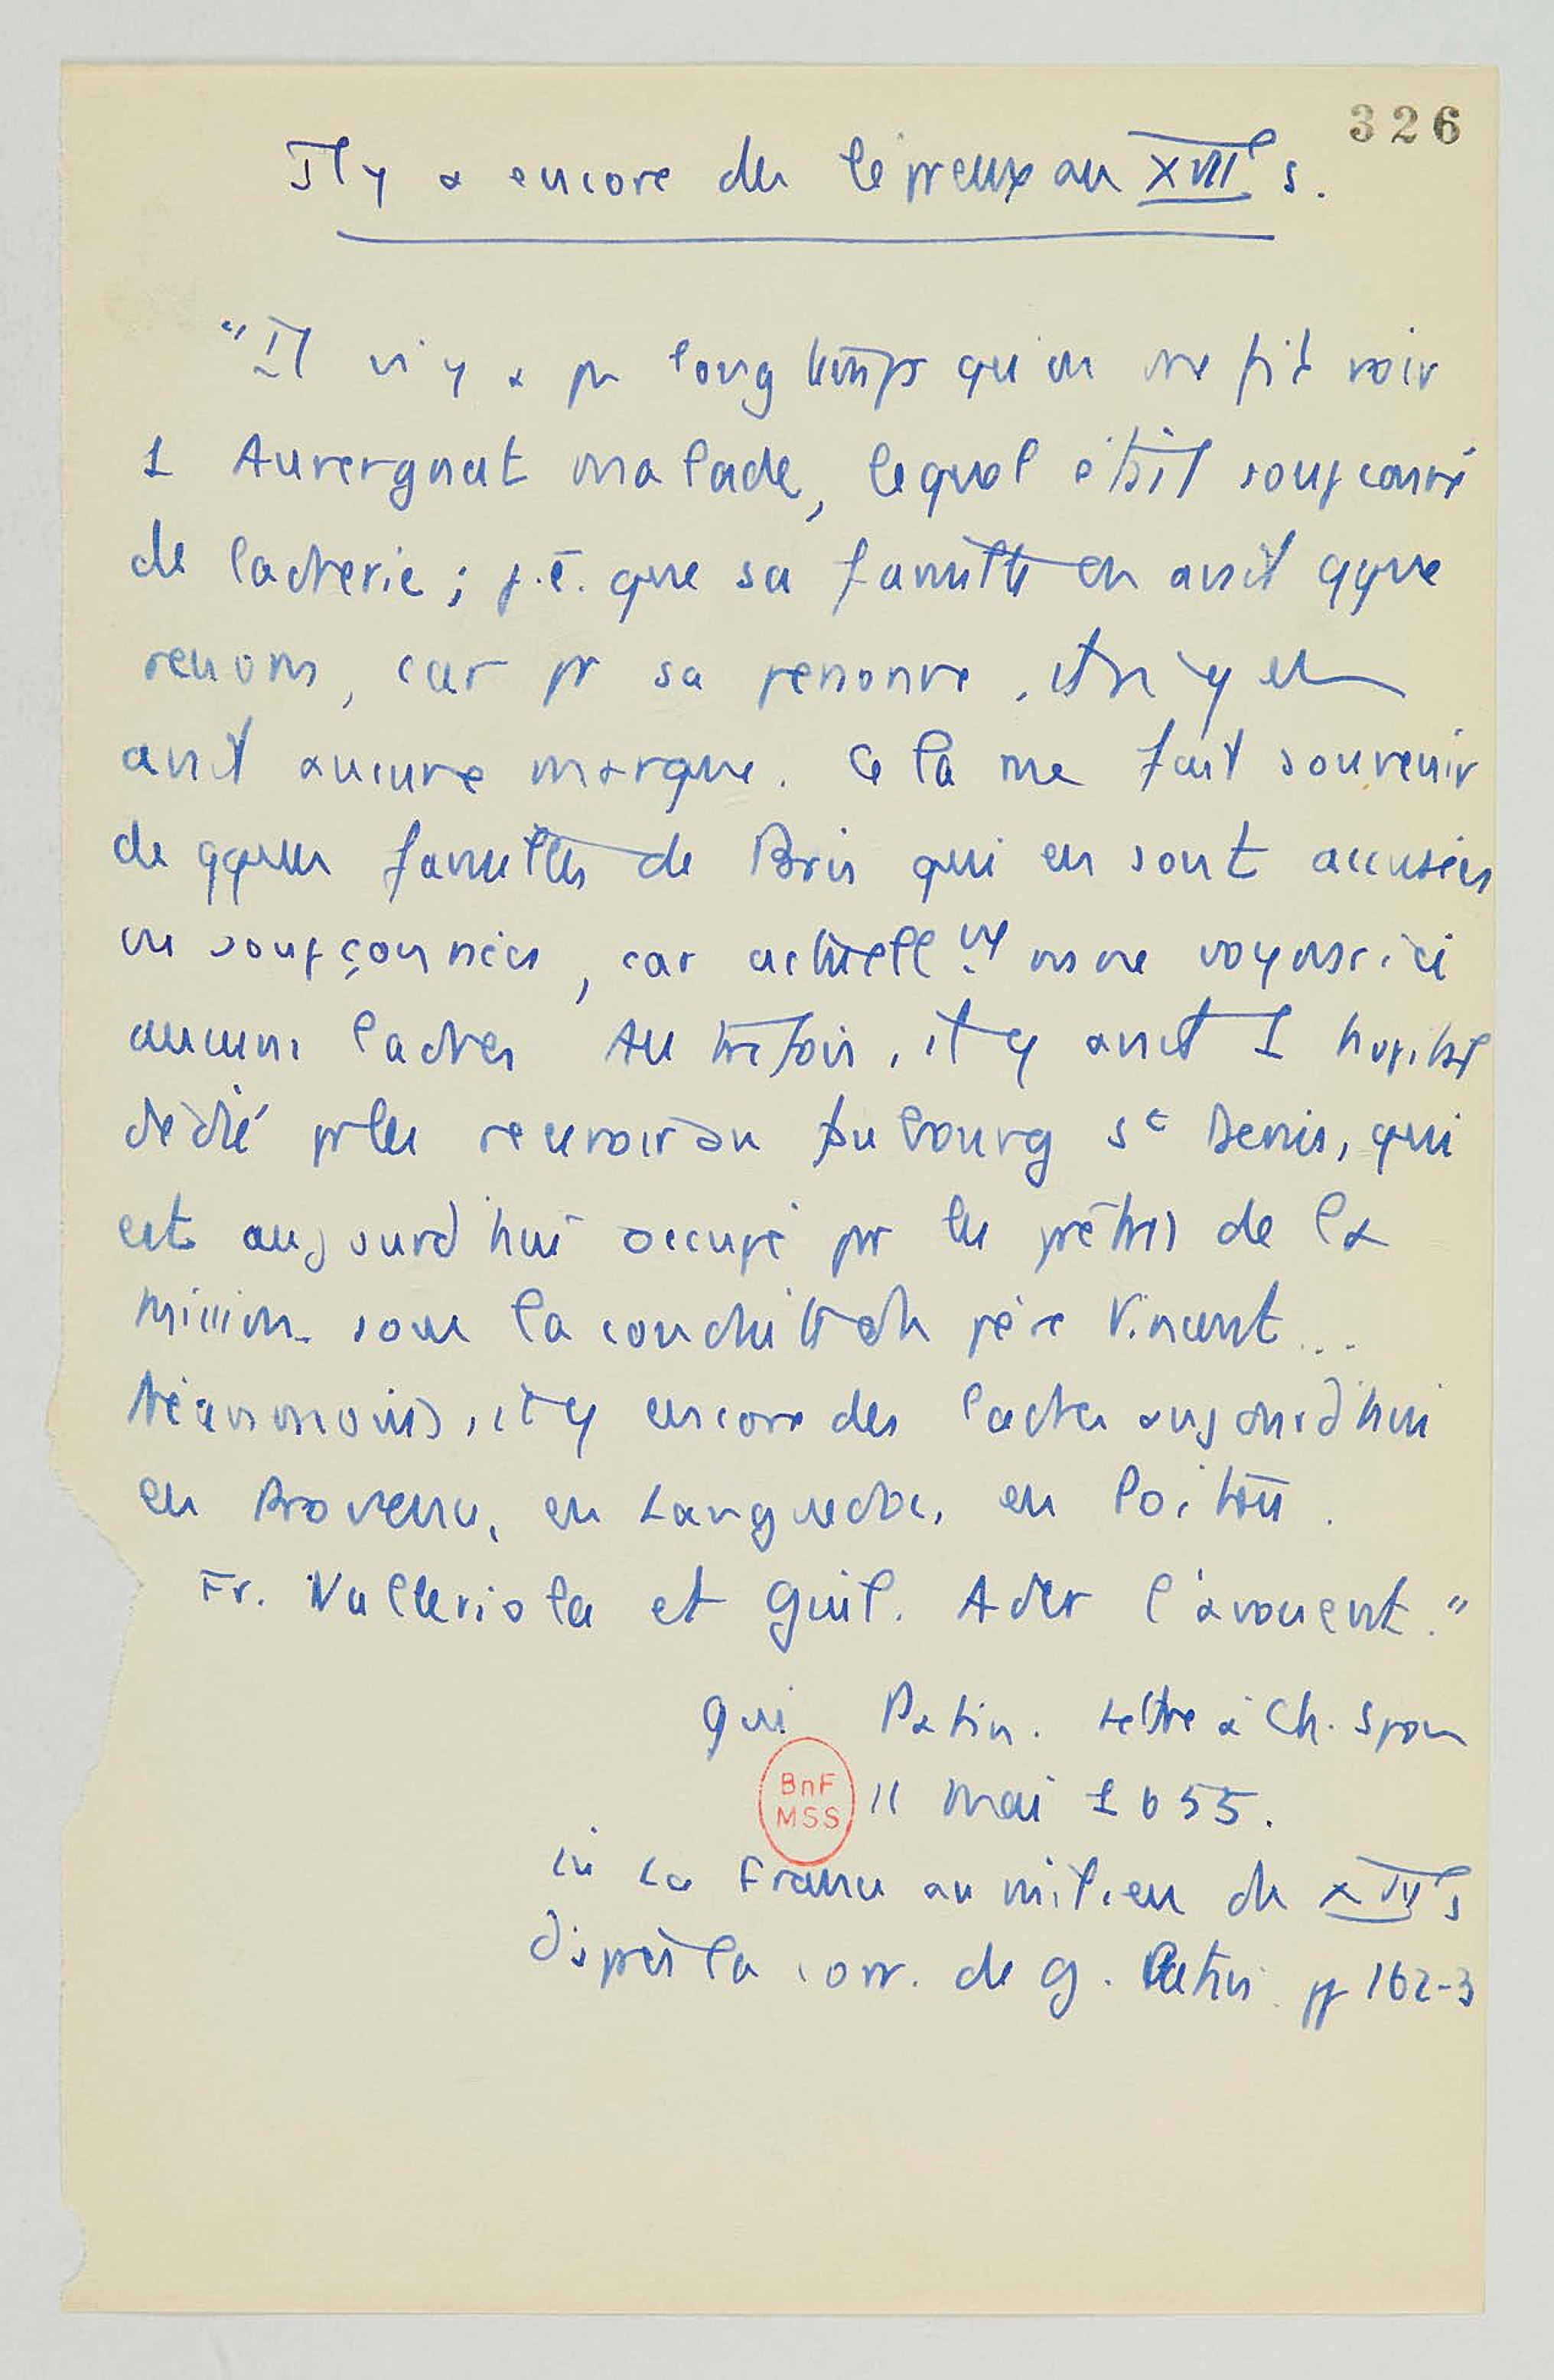 326
Il y a encore des lépreux au XVIIe s.
"Il n'y a pas longtemps qu'on me fit voir
1 Auvergnat malade, lequel était soupçonné
de ladrerie ; p.ê. que sa famille en avait qque
renom, car pr sa personne, il n'y en
avait aucune marque. Cela me fait souvenir
de qques familles de Paris qui en sont accusées
ou soupçonnées, car actuellemt ns ne voyons ici
aucuns ladres Autrefois, il y avait 1 hopital
dédié pr les recevoir au fubourg St Denis, qui
est aujourd'hui occupé par les prêtres de la
Mission sous la conduite de père Vincent...
Néanmoins, il y encore des ladres aujourd'hui
en Provence, en Languedoc, en Poitou.
Fr. Valleriola et Guil. Ader l'avouent."
Gui Patin. Lettre à Ch. Spon
BnF
MSS
11 mai 1655.
in La France au milieu du XVIIe s
d'après la corr. de G. Patin pp 162-3